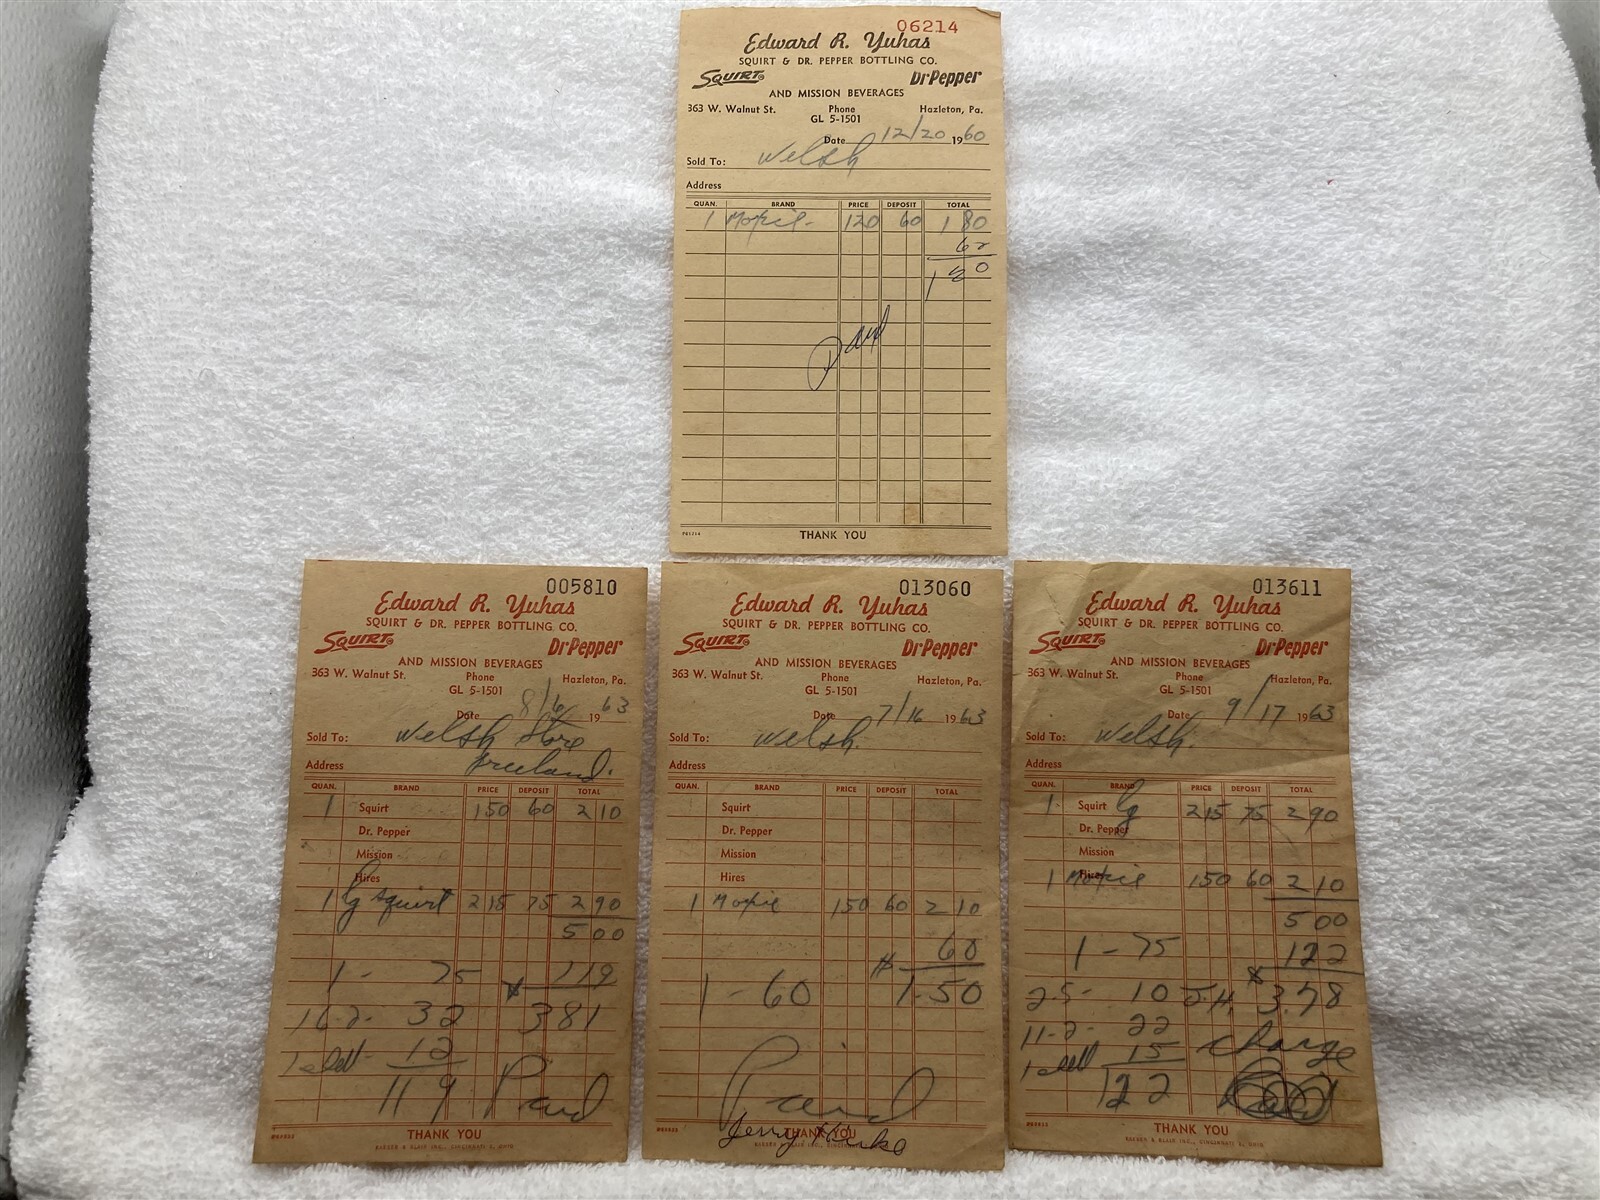 06214
Edward R. Yuhas
SQUIRT & DR. PEPPER BOTTLING CO.
SQUIRT DrPepper
AND MISSION BEVERAGES
363 W. Walnut St. Phone Hazleton, Pa.
GL 5-1501
Date 12/20 1960
Sold To: Welsh
Address
QUAN. BRAND PRICE DEPOSIT TOTAL
1 Moxie - 120 60 1 80
60
1 20
Paid
THANK YOU
005810
Edward R. Yuhas
SQUIRT & DR. PEPPER BOTTLING CO.
SQUIRT DrPepper
AND MISSION BEVERAGES
363 W. Walnut St. Phone Hazleton, Pa.
GL 5-1501
Date 8/6 1963
Sold To: Welsh Store
Address Freeland.
QUAN. BRAND PRICE DEPOSIT TOTAL
1 Squirt 150 60 2 10
Dr. Pepper
Mission
Hires
1 lg Squirt 215 75 2 90
5 00
1 - 75 119
16-2- 32 381
12
119 Paid
THANK YOU
013060
Edward R. Yuhas
SQUIRT & DR. PEPPER BOTTLING CO.
SQUIRT DrPepper
AND MISSION BEVERAGES
363 W. Walnut St. Phone Hazleton, Pa.
GL 5-1501
Date 7/16 1963
Sold To: Welsh.
Address
QUAN. BRAND PRICE DEPOSIT TOTAL
Squirt
Dr. Pepper
Mission
Hires
1 Moxie 150 60 2 10
60
1 - 60 1.50
Paid
THANK YOU
Jerry
013611
Edward R. Yuhas
SQUIRT & DR. PEPPER BOTTLING CO.
SQUIRT DrPepper
AND MISSION BEVERAGES
363 W. Walnut St. Phone Hazleton, Pa.
GL 5-1501
Date 9/17 1963
Sold To: Welsh.
Address
QUAN. BRAND PRICE DEPOSIT TOTAL
1 Squirt lg 215 75 2 90
Dr. Pepper
Mission
Hires
1 Moxie 150 60 2 10
5 00
1 - 75 122
2-5- 10 3.78
11-2- 22 charge
15
122
THANK YOU